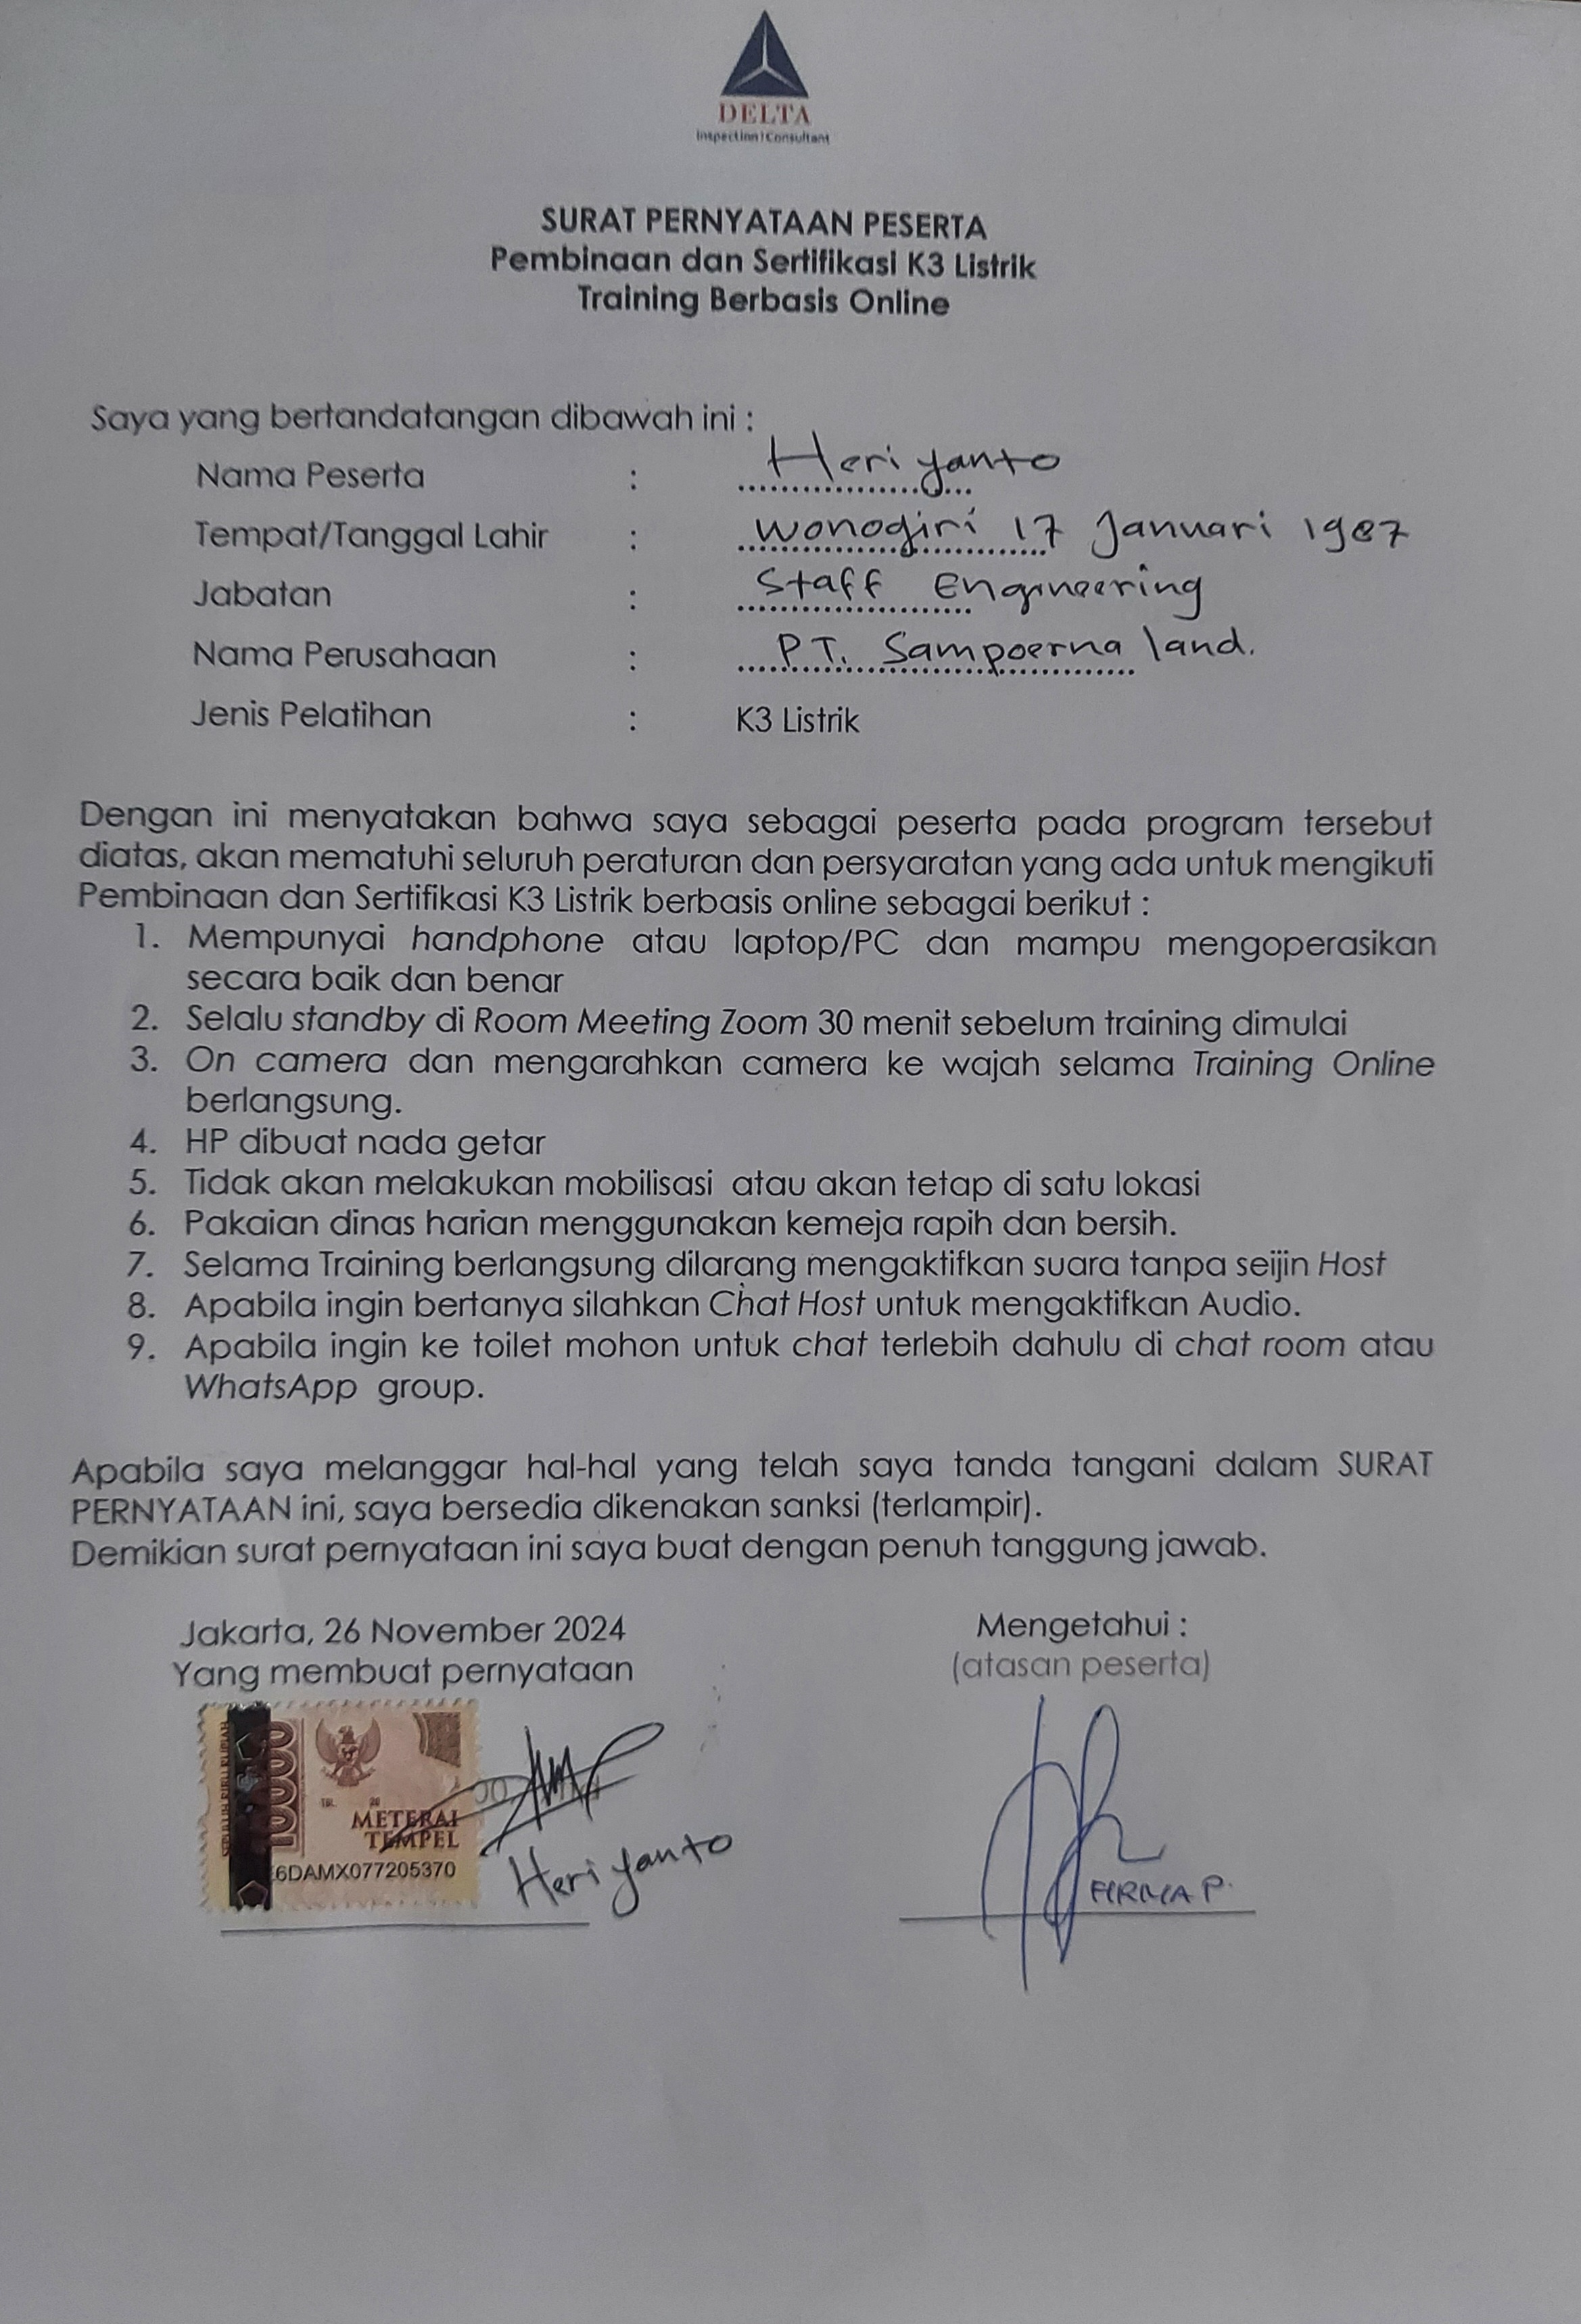 DELTA
Inspection|Consultant
SURAT PERNYATAAN PESERTA
Pembinaan dan Sertifikasi K3 Listrik
Training Berbasis Online
Saya yang bertandatangan dibawah ini :
Nama Peserta : Heriyanto
Tempat/Tanggal Lahir : Wonogiri 17 Januari 1987
Jabatan : Staff Engineering
Nama Perusahaan : PT. Sampoerna land.
Jenis Pelatihan : K3 Listrik
Dengan ini menyatakan bahwa saya sebagai peserta pada program tersebut
diatas, akan mematuhi seluruh peraturan dan persyaratan yang ada untuk mengikuti
Pembinaan dan Sertifikasi K3 Listrik berbasis online sebagai berikut :
1. Mempunyai handphone atau laptop/PC dan mampu mengoperasikan
secara baik dan benar
2. Selalu standby di Room Meeting Zoom 30 menit sebelum training dimulai
3. On camera dan mengarahkan camera ke wajah selama Training Online
berlangsung.
4. HP dibuat nada getar
5. Tidak akan melakukan mobilisasi atau akan tetap di satu lokasi
6. Pakaian dinas harian menggunakan kemeja rapih dan bersih.
7. Selama Training berlangsung dilarang mengaktifkan suara tanpa seijin Host
8. Apabila ingin bertanya silahkan Chat Host untuk mengaktifkan Audio.
9. Apabila ingin ke toilet mohon untuk chat terlebih dahulu di chat room atau
WhatsApp group.
Apabila saya melanggar hal-hal yang telah saya tanda tangani dalam SURAT
PERNYATAAN ini, saya bersedia dikenakan sanksi (terlampir).
Demikian surat pernyataan ini saya buat dengan penuh tanggung jawab.
Jakarta, 26 November 2024 Mengetahui :
Yang membuat pernyataan (atasan peserta)
10000
TGL. 20
METERAI
TEMPEL
6DAMX077205370
Heriyanto